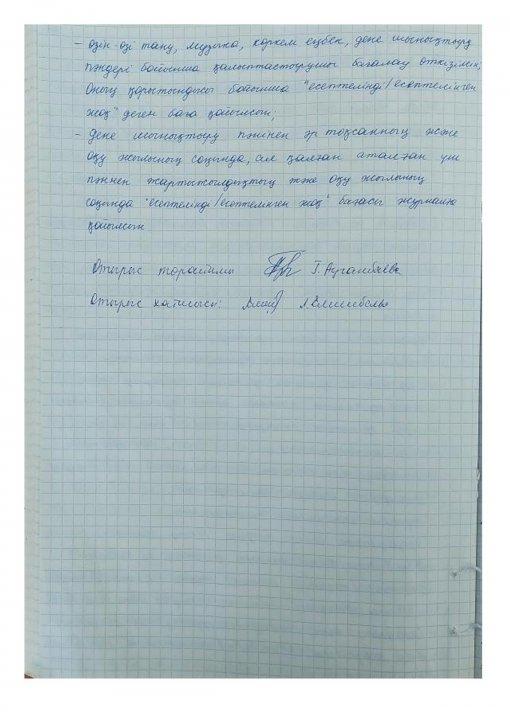 - өзін-өзі тану, музыка, көркем еңбек, дене шынықтыру
пәндері бойынша қалыптастырушы бағалау өткізіліп,
оның қорытындысы бойынша "есептелінді/есептелінген
жоқ" деген баға қойылсын;
- дене шынықтыру пәнінен әр тоқсанның және
оқу жылының соңында, ал қалған аталған үш
пәннен жартыжылдықтың және оқу жылының
соңында "есептелінді/есептелінген жоқ" бағасы журналға
қойылсын
Отырыс төрайымы Г.
Отырыс хатшысы: Л.